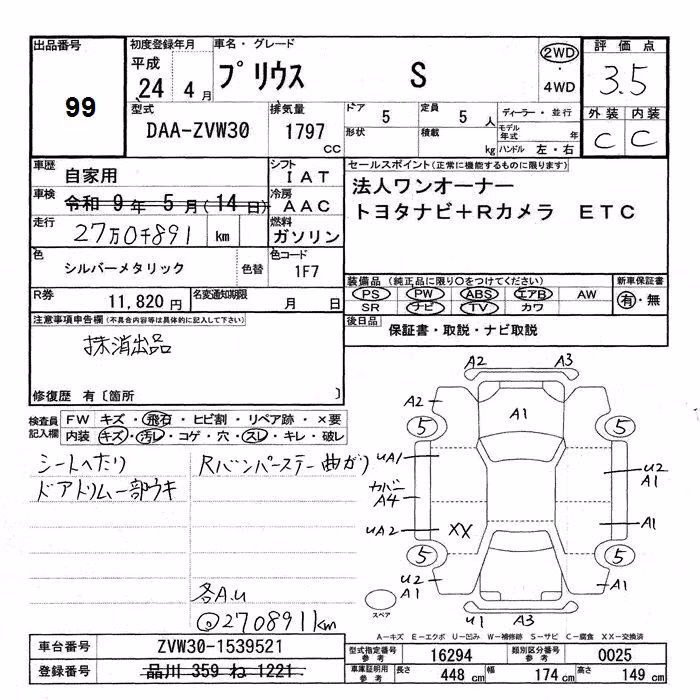 出品番号
99
初度登録年月
平成
24 4月
車名・グレード
プリウス S
2WD
・
4WD
評価点
3.5
外装 内装
C C
型式
DAA-ZVW30
排気量
1797
CC
ドア
5
定員
5人
形状
積載
kg
ディーラー・並行
モデル年式 年
ハンドル 左・右
車歴
自家用
シフト
IAT
車検
令和 9年 5月(14日)
冷房
AAC
走行
27万0千891 km
燃料
ガソリン
色
シルバーメタリック
色替
色コード
1F7
R券
11,820円
名変通知期限
月 日
セールスポイント(正常に機能するものに限ります)
法人ワンオーナー
トヨタナビ+Rカメラ ETC
装備品(純正品に限り○をつけてください)
PS PW ABS エアB AW
SR ナビ TV カワ
新車保証書
有・無
後日品
保証書・取説・ナビ取説
注意事項申告欄(不具合内容等は具体的に記入して下さい)
抹消出品
修復歴 有〔箇所 〕
検査員
記入欄
FW キズ・飛石・ヒビ割・リペア跡・×要
内装 キズ・汚レ・コゲ・穴・スレ・キレ・破レ
シートへたり
ドアトリム一部ウキ
Rバンパーステー曲がり
各A.U
◎270891km
A2 A3
A2
A1
5 5
UA1
U2
A1
カバー
A4
UA2
XX
A1
5 5
U2
A1
A1
スペア
U1 A3
A−キズ E−エクボ U−凹み W−補修跡 S−サビ C−腐食 XX−交換済
車台番号
ZVW30-1539521
登録番号
品川 359 ね 1221
型式指定番号
参考
16294
類別区分番号
参考
0025
車庫証明用
参考
長さ 448 cm
幅 174 cm
高さ 149 cm